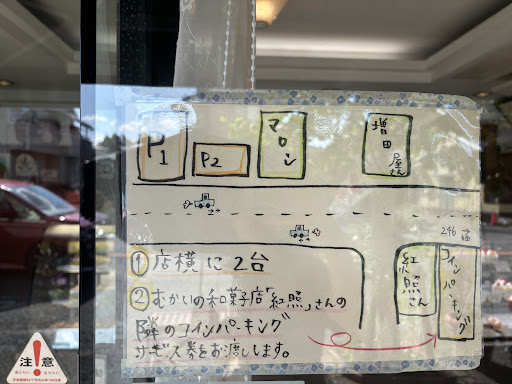 P1
P2
マロン
増田屋さん
246
紅照さん
コインパーキング
① 店横に2台
② むかいの和菓子店「紅照」さんの
隣のコインパーキング
サービス券をお渡しします。
注意